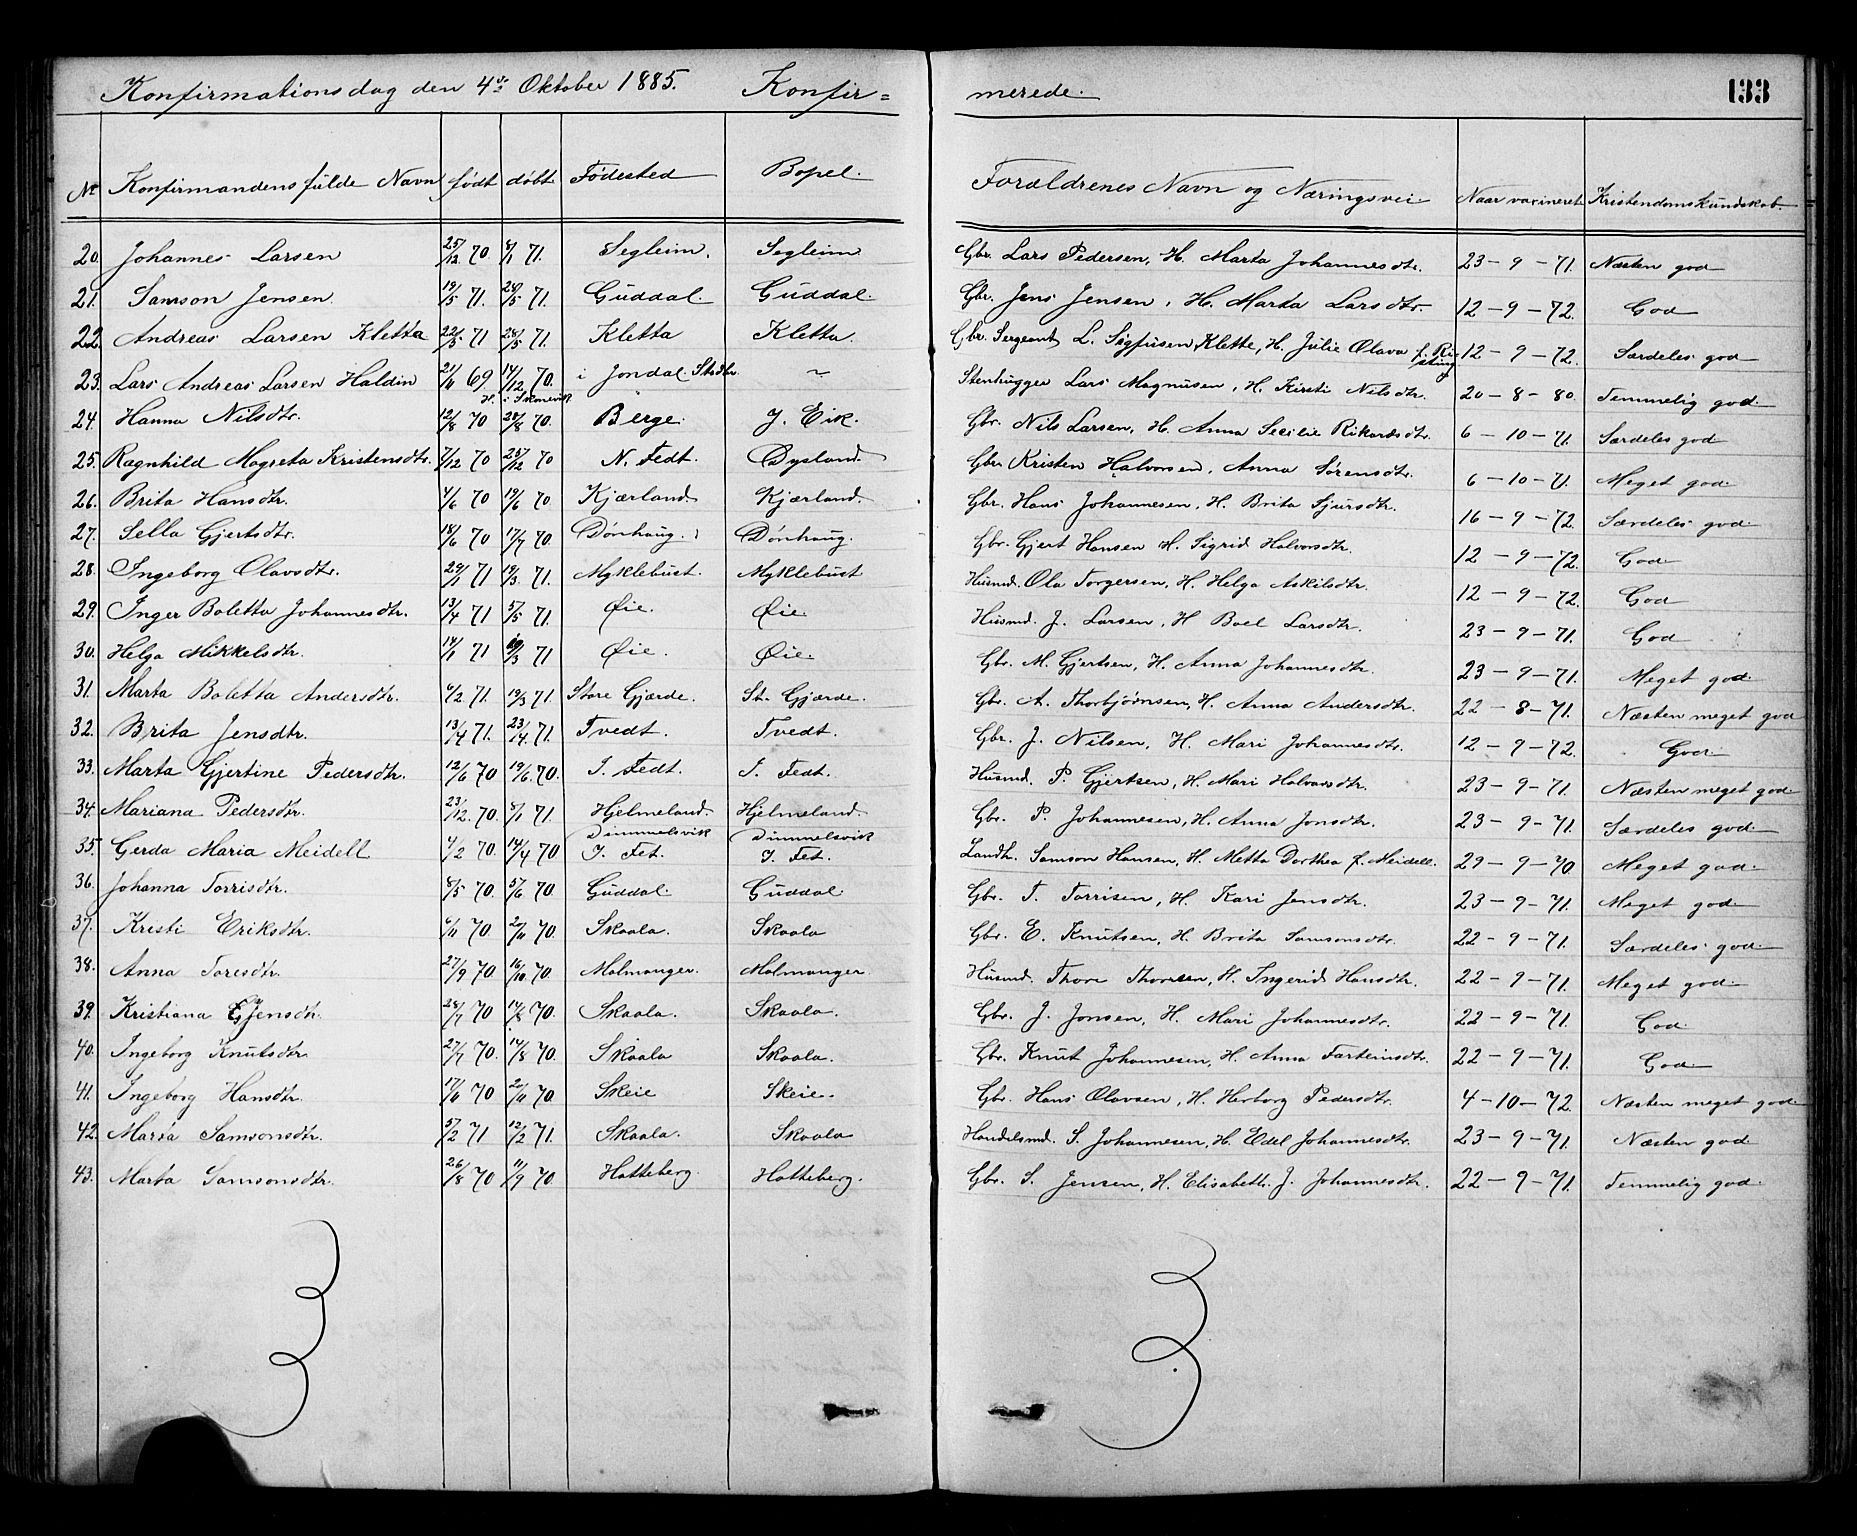 Konfirmationsdag den 4de Oktober 1885. Konfir=
merede. 133
No Konfirmandens fulde Navn født døbt Fødested Bopel. Forældrenes Navn og Næringsvei Naar vaxineret Kristendomskundskab.
20. Johannes Larsen 25/12 70. 8/1 71. Segleim. Segleim Gbr. Lars Pedersen, H. Marta Johannesdtr. 23-9-71. Næsten god
21. Samson Jensen. 19/5 71. 28/5 71. Guddal. Guddal. Gbr. Jens Jensen, H. Marta Larsdtr. 12-9-72. God
22. Andreas Larsen Kletta 22/5 71 28/5 71. Kletta Kletta. Gbr. Sergeant L. Sigfusen Klette, H. Julie Olava f. Risting 12-9-72. Særdeles god
23. Lars Andreas Larsen Haldin 21/11 69 14/12 70. i Jondal Stedtr. ~ Stenhugger Lars Magnusen, H. Kirsti Nilsdtr. 20-8-80. Temmelig god.
H. i Skonevik
24. Hanna Nilsdtr. 12/8 70 28/8 70. Berge. J. Eik. Gbr. Nils Larsen, H. Anna Secilie Rikardsdtr. 6-10-71. Særdeles god
25. Ragnhild Magreta Kristensdtr. 7/12 70 25/12 70 N. Fedt. Dysland. Gbr. Kristen Halvorsen, Anna Sørensdtr. 6-10-71. Meget god.
26. Brita Hansdtr. 4/6 70 19/6 70 Kjærland Kjærland. Gbr. Hans Johannesen, H. Brita Sjursdtr. 16-9-72. Særdeles god
27. Sella Gjertsdtr. 18/6 70 17/7 70. Dønhaug. Dønhaug. Gbr. Gjert Hansen H. Sigrid Halvorsdtr. 12-9-72. God
28. Ingeborg Olavsdtr. 29/1 71 19/3 71. Myklebust. Myklebust Husmd. Ola Torgersen, H. Helga Askilsdtr. 12-9-72. God
29. Inger Boletta Johannesdtr. 13/4 71 5/5 71. Øie. Øie. Husmd. J. Larsen, H Boel Larsdtr. 23-9-71. God
30. Helga Mikkelsdtr. 14/1 71 19/3 71 Øie. Øie. Gbr. M. Gjertsen, H. Anna Johannesdtr. 23-9-71. Meget god.
31. Marta Boletta Andersdtr. 4/2 71. 19/3 71. Store Gjærde. St. Gjærde. Gbr. A. Thorbjørnsen, H. Anna Andersdtr. 22-8-71. Næsten meget god
32. Brita Jensdtr. 13/4 71. 23/4 71. Tvedt. Tvedt. Gbr. J. Nilsen, H. Mari Johannesdtr. 12-9-72. God.
33. Marta Gjertine Pedersdtr. 12/6 70 19/6 70. I. Fedt. I. Fedt. Husmd. P. Gjertsen, H. Mari Halvorsdtr. 23-9-71. Næsten meget god
34. Mariana Pedersdtr. 23/12 70. 8/1 71. Hjelmeland. Hjelmeland. Gbr. P. Johannesen, H. Anna Jonsdtr. 23-9-71. Særdeles god.
Dimmelsvik Dimmelsvik
35. Gerda Maria Meidell 4/2 70. 14/4 70 I. Fet. I. Fet. Landh. Samson Hansen, H. Metta Dorthea f. Meidell. 29-9-70 Meget god.
36. Johanna Torrisdtr. 8/5 70. 5/6 70 Guddal. Guddal. Gbr. T. Torrisen, H. Kari Jensdtr. 23-9-71. Meget god.
37. Kristi Eriksdtr. 6/11 70. 20/11 70. Skaala. Skaala Gbr. E. Knutsen, H. Brita Samsonsdtr. 22-9-71. Særdeles god.
38. Anna Toresdtr. 27/9 70 16/10 70. Malmanger. Malmanger. Husmd. Thore Thorsen, H. Ingerid Hansdtr. 22-9-71. Meget god.
39. Kristiana Jensdtr. 28/7 70 14/8 70. Skaala. Skaala. Gbr. J. Jonsen, H. Mari Johannesdtr. 22-9-71. God.
40. Ingeborg Knutsdtr. 27/7 70. 14/8 70. Skaala Skaala. Gbr. Knut Johannesen, H. Anna Farteinsdtr. 22-9-71. God
41. Ingeborg Hansdtr. 17/6 70 20/11 70. Skeie Skeie. Gbr. Hans Olavsen, H. Herborg Pedersdtr. 4-10-72. Næsten meget god.
42. Marta Samsonsdtr. 5/2 71 12/2 71. Skaala. Skaala Handelsmd. S. Johannesen, H. Edel Johannesdtr. 23-9-71. Næsten god
43. Marta Samsonsdtr. 26/8 70 11/9 70 Hatteberg. Hatteberg. Gbr. S. Jensen, H. Elisabeth J. Johannesdtr. 22-9-71. Temmelig god.